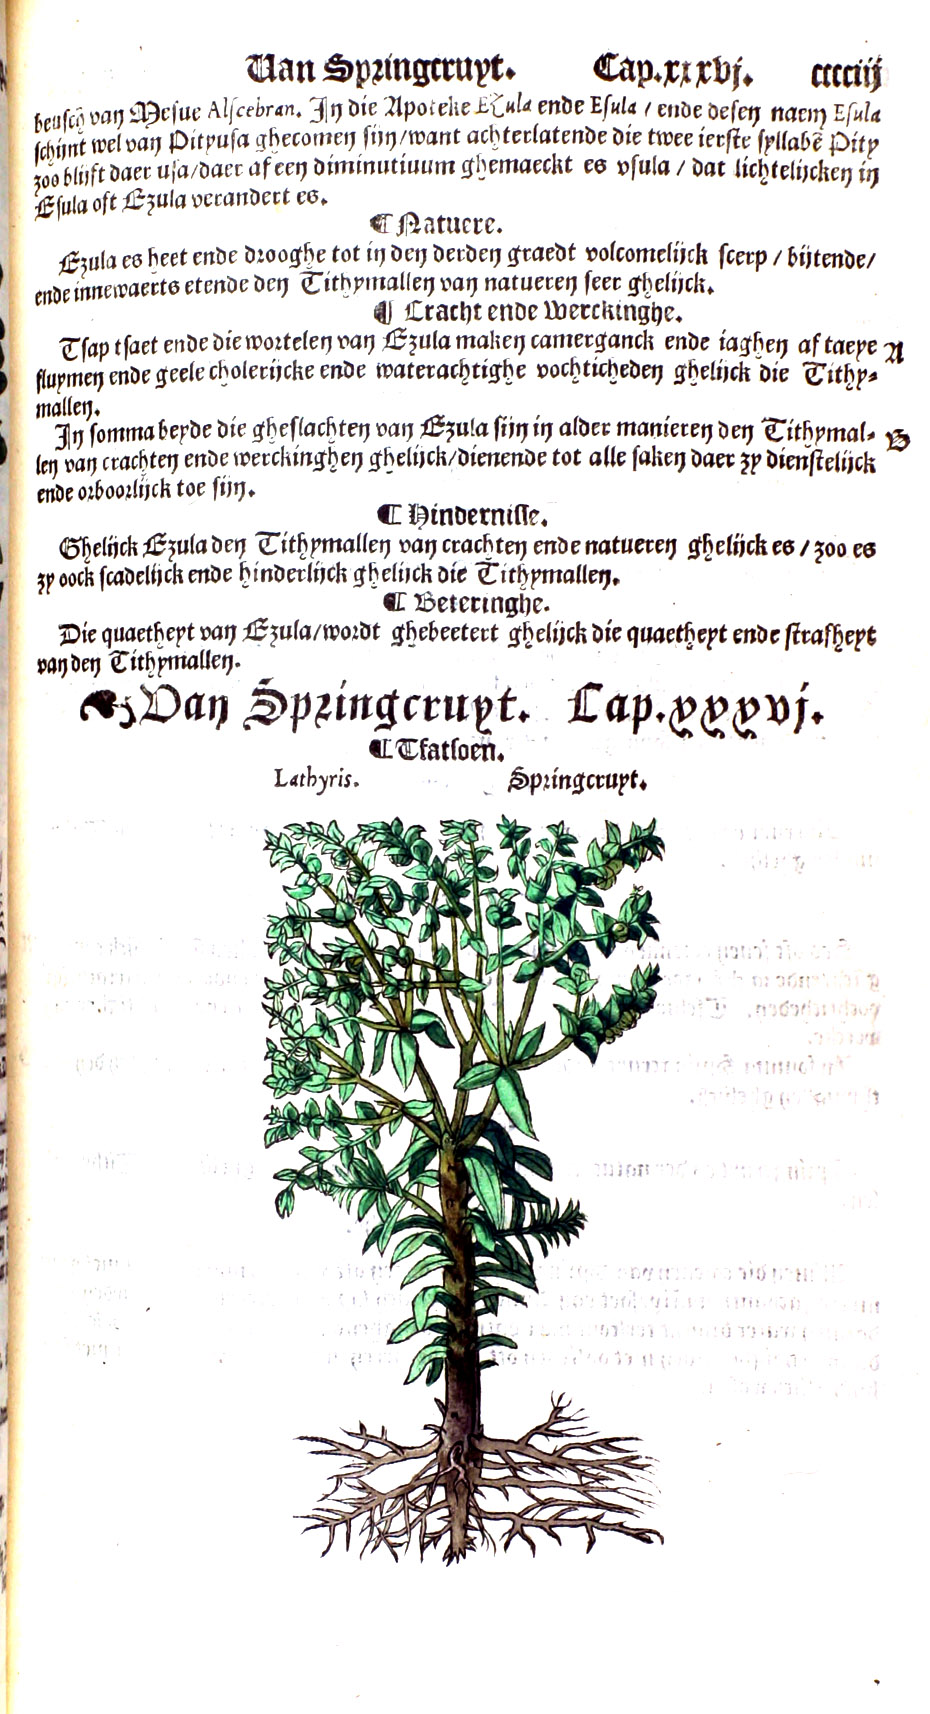 Van Springcruyt. Cap.xxxvj. cccciij
beusch van Mesue Alscebran. In die Apoteke Ezula ende Esula / ende desen naem Esula
schijnt wel van Pityusa ghecomen sijn/want achterlatende die twee ierste syllabē Pity
zoo blijft daer usa/daer af een diminutiuum ghemaeckt es vsula / dat lichtelijcken in
Esula oft Ezula verandert es.
¶ Natuere.
Ezula es heet ende drooghe tot in den derden graedt volcomelijck scerp / bijtende/
ende innewaerts etende den Tithymallen van natueren seer ghelijck.
¶ Cracht ende Werckinghe.
Tsap tsaet ende die wortelen van Ezula maken camerganck ende iaghen af taeye A
fluymen ende geele cholerijcke ende waterachtighe vochticheden ghelijck die Tithy-
mallen.
In somma beyde die gheslachten van Ezula sijn in alder manieren den Tithymal- B
len van crachten ende werckinghen ghelijck/dienende tot alle saken daer zy dienstelijck
ende orboorlijck toe sijn.
¶ Hindernisse.
Ghelijck Ezula den Tithymallen van crachten ende natueren ghelijck es / zoo es
zy oock scadelijck ende hinderlijck ghelijck die Tithymallen.
¶ Beteringhe.
Die quaetheyt van Ezula/wordt ghebeetert ghelijck die quaetheyt ende strafheyt
van den Tithymallen.
❧ Van Springcruyt. Cap.xxxvj.
¶ Tfatsoen.
Lathyris. Springcruyt.